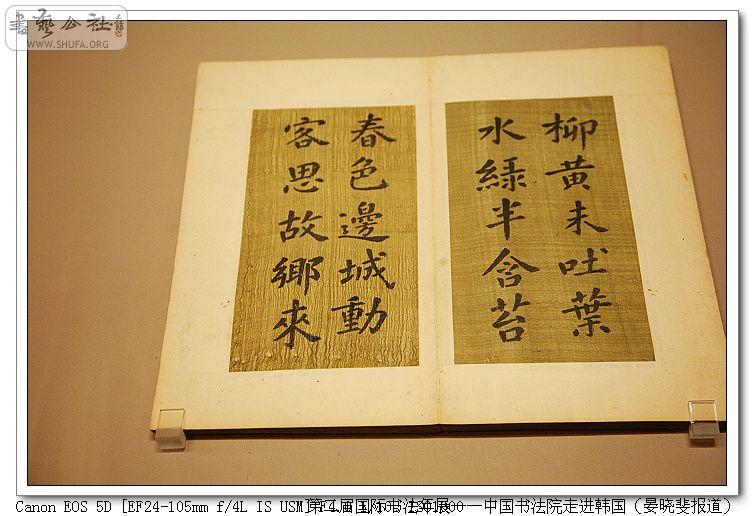 書藝公社
WWW.SHUFA.ORG
柳黄未吐葉
水綠半含苔
春色邊城動
客思故鄉來
Canon EOS 5D [EF24-105mm f/4L IS USM]
第二届国际书法年展——中国书法院走进韩国（晏晓斐报道）